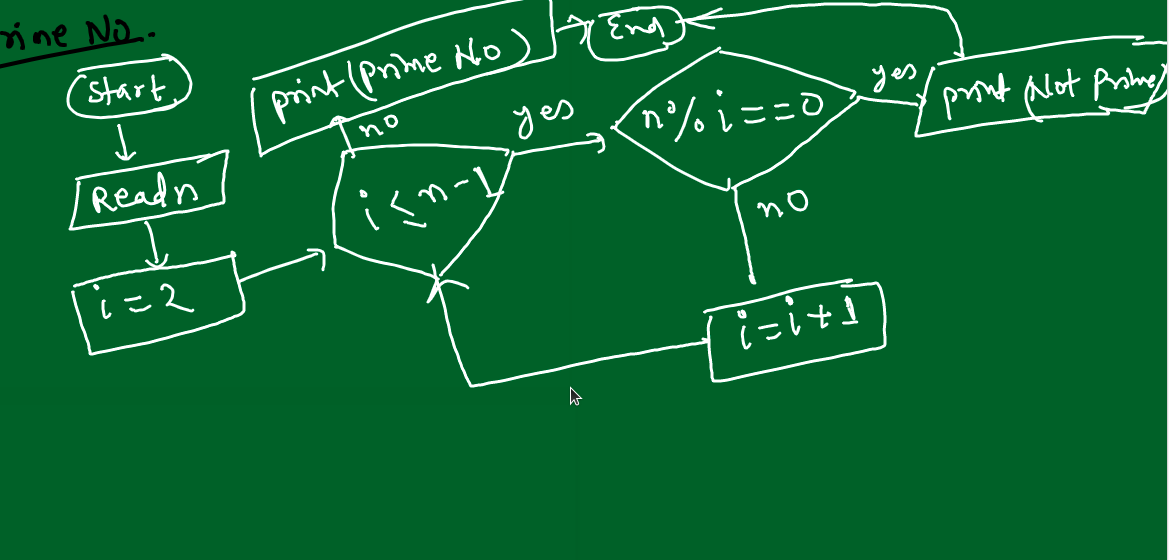 rine No.
Start
Read n
i = 2
i ≤ n - 1
no
print (Prime No)
End
yes
n % i == 0
yes
print (Not Prime)
no
i = i + 1